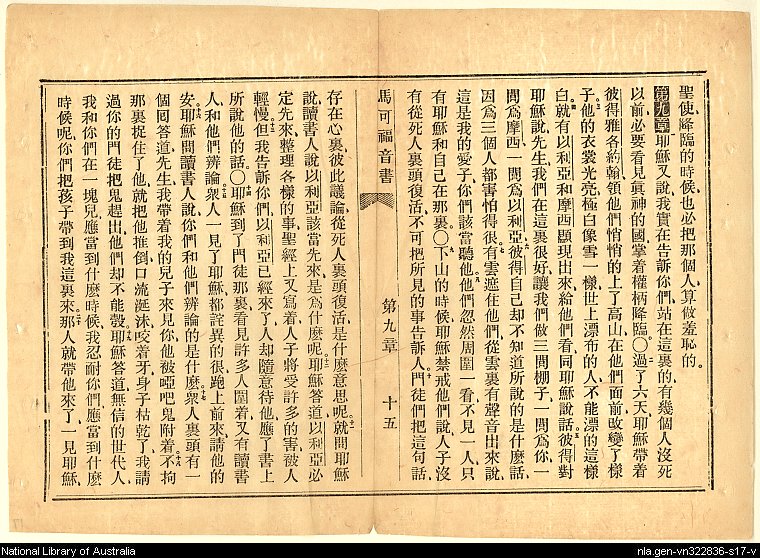 聖使降臨的時候也必把那個人算做羞恥的。
第九章耶穌又說我實在告訴你們站在這裏的有幾個人沒死
以前必要看見眞神的國掌着權柄降臨〇二過了六天耶穌帶着
彼得雅各約翰領他們悄悄的上了高山在他們面前改變了樣
子三他的衣裳光亮極白像雪一樣世上漂布的人不能漂的這樣
白四就有以利亞和摩西顯現出來給他們看同耶穌說話五彼得對
耶穌說先生我們在這裏很好讓我們做三間棚子一間爲你一
間爲摩西一間爲以利亞六彼得自己却不知道所說的是什麼話
因爲三個人都害怕得很七有雲遮在他們從雲裏有聲音出來說
這是我的愛子你們該當聽他八他們忽然周圍一看不見一人只
有耶穌和自己在那裏〇九下山的時候耶穌禁戒他們說人子沒
有從死人裏頭復活不可把所見的事告訴人十門徒們把這句話
馬可福音書
第九章
十五
存在心裏彼此議論從死人裏頭復活是什麼意思呢十一就問耶穌
說讀書人說以利亞該當先來是爲什麼呢十二耶穌答道以利亞必
定先來整理各樣的事聖經上又寫着人子將受許多的害被人
輕慢十三但我告訴你們以利亞已經來了人却隨意待他應了書上
所說他的話〇十四耶穌到了門徒那裏看見許多人圍着又有讀書
人和他們辨論十五衆人一見了耶穌都詫異的很跑上前來請他的
安十六耶穌問讀書人說你們和他們辨論的是什麼十七衆人裏頭有一
個囘答道先生我帶着我的兒子來見你他被啞吧鬼附着十八不拘
那裏捉住了他就把他推倒口流涎沫咬着牙身子枯乾了我請
過你的門徒把鬼趕出他們却不能彀十九耶穌答道無信的世代人
我和你們在一塊兒應當到什麼時候我忍耐你們應當到什麼
時候呢你們把孩子帶到我這裏來二十那人就帶他來了一見耶穌
National Library of Australia
nla.gen-vn322836-s17-v